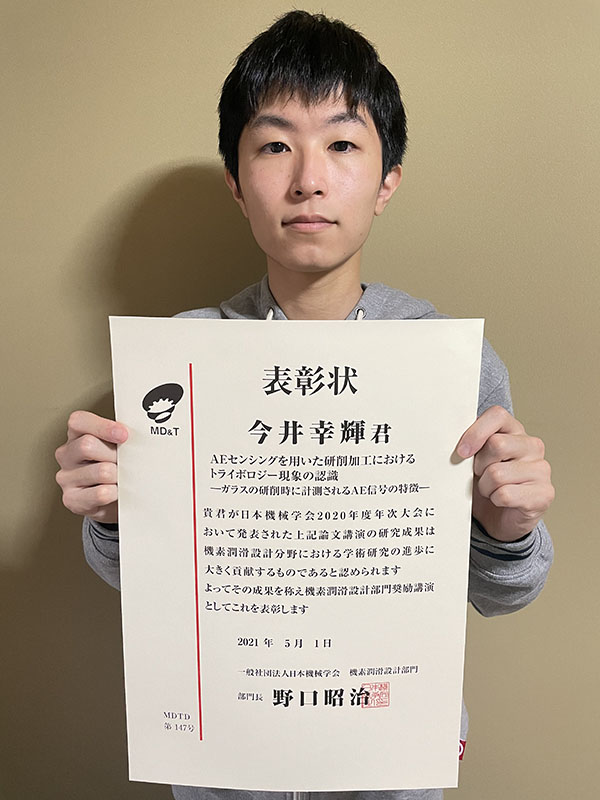 表彰状
MD&T
今井幸輝君
AEセンシングを用いた研削加工における
トライボロジー現象の認識
―ガラスの研削時に計測されるAE信号の特徴―
貴君が日本機械学会2020年度年次大会に
おいて発表された上記論文講演の研究成果は
機素潤滑設計分野における学術研究の進歩に
大きく貢献するものであると認められます
よってその成果を称え機素潤滑設計部門奨励講演
としてこれを表彰します
2021年 5月 1日
一般社団法人日本機械学会 機素潤滑設計部門
部門長 野口昭治
MDTD
第147号